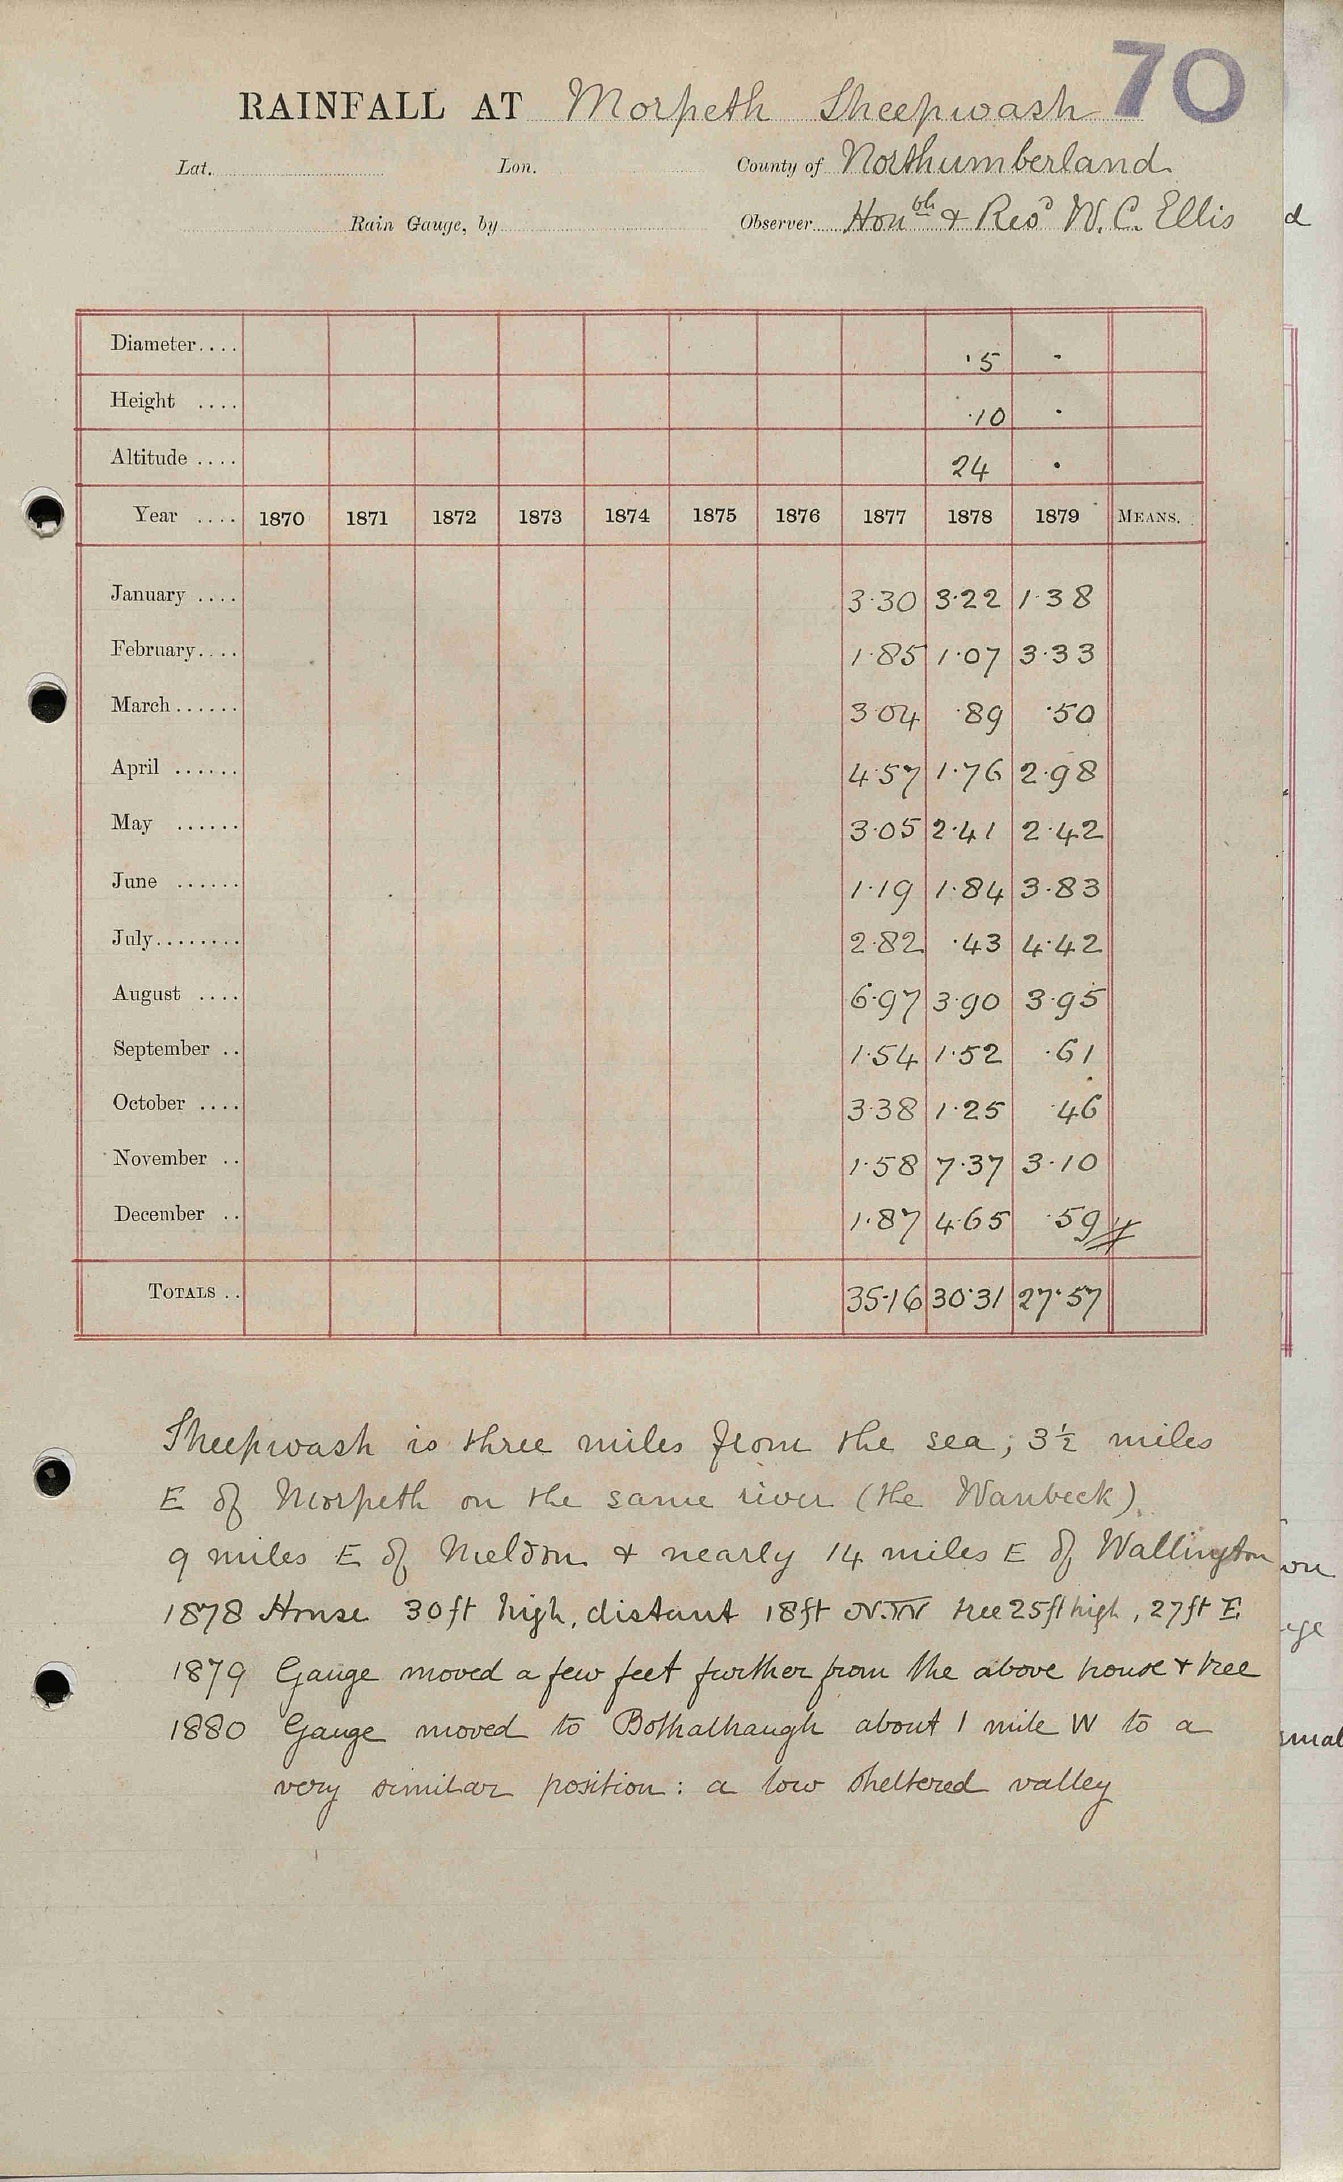 70
RAINFALL AT Morpeth Sheepwash
Lat. Lon. County of Northumberland
Rain Gauge, by Observer Honble & Revd W. C. Ellis
Diameter.... ·5 ·
Height .... ·10 ·
Altitude .... 24 ·
Year .... 1870 1871 1872 1873 1874 1875 1876 1877 1878 1879 MEANS.
January .... 3·30 3·22 1·38
February.... 1·85 1·07 3·33
March...... 3·04 ·89 ·50
April ...... 4·57 1·76 2·98
May ...... 3·05 2·41 2·42
June ...... 1·19 1·84 3·83
July........ 2·82 ·43 4·42
August .... 6·97 3·90 3·95
September .. 1·54 1·52 ·61
October .... 3·38 1·25 ·46
November .. 1·58 7·37 3·10
December .. 1·87 4·65 ·59
TOTALS .. 35·16 30·31 27·57
Sheepwash is three miles from the sea; 3½ miles
E of Morpeth on the same river (the Wanbeck).
9 miles E of Meldon & nearly 14 miles E of Wallington
1878 House 30ft high, distant 18ft tree 25ft high, 27ft E
1879 Gauge moved a few feet further from the above house & tree
1880 Gauge moved to Bothalhaugh about 1 mile W to a
very similar position: a low sheltered valley